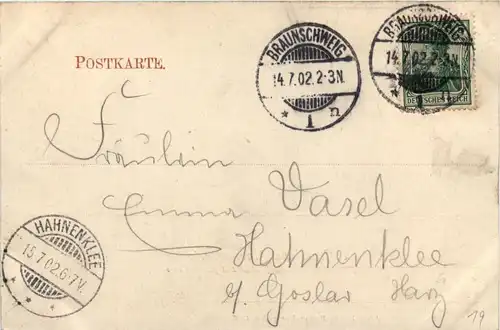 POSTKARTE.
BRAUNSCHWEIG
14.7.02.2-3N.
* 1 n
BRAUNSCHWEIG
14.7.02.2-3N.
DEUTSCHES REICH
Fräulein
Emma Vasel
Hahnenklee
b/ Goslar Harz
HAHNENKLEE
15.7.02.6-7V.
19